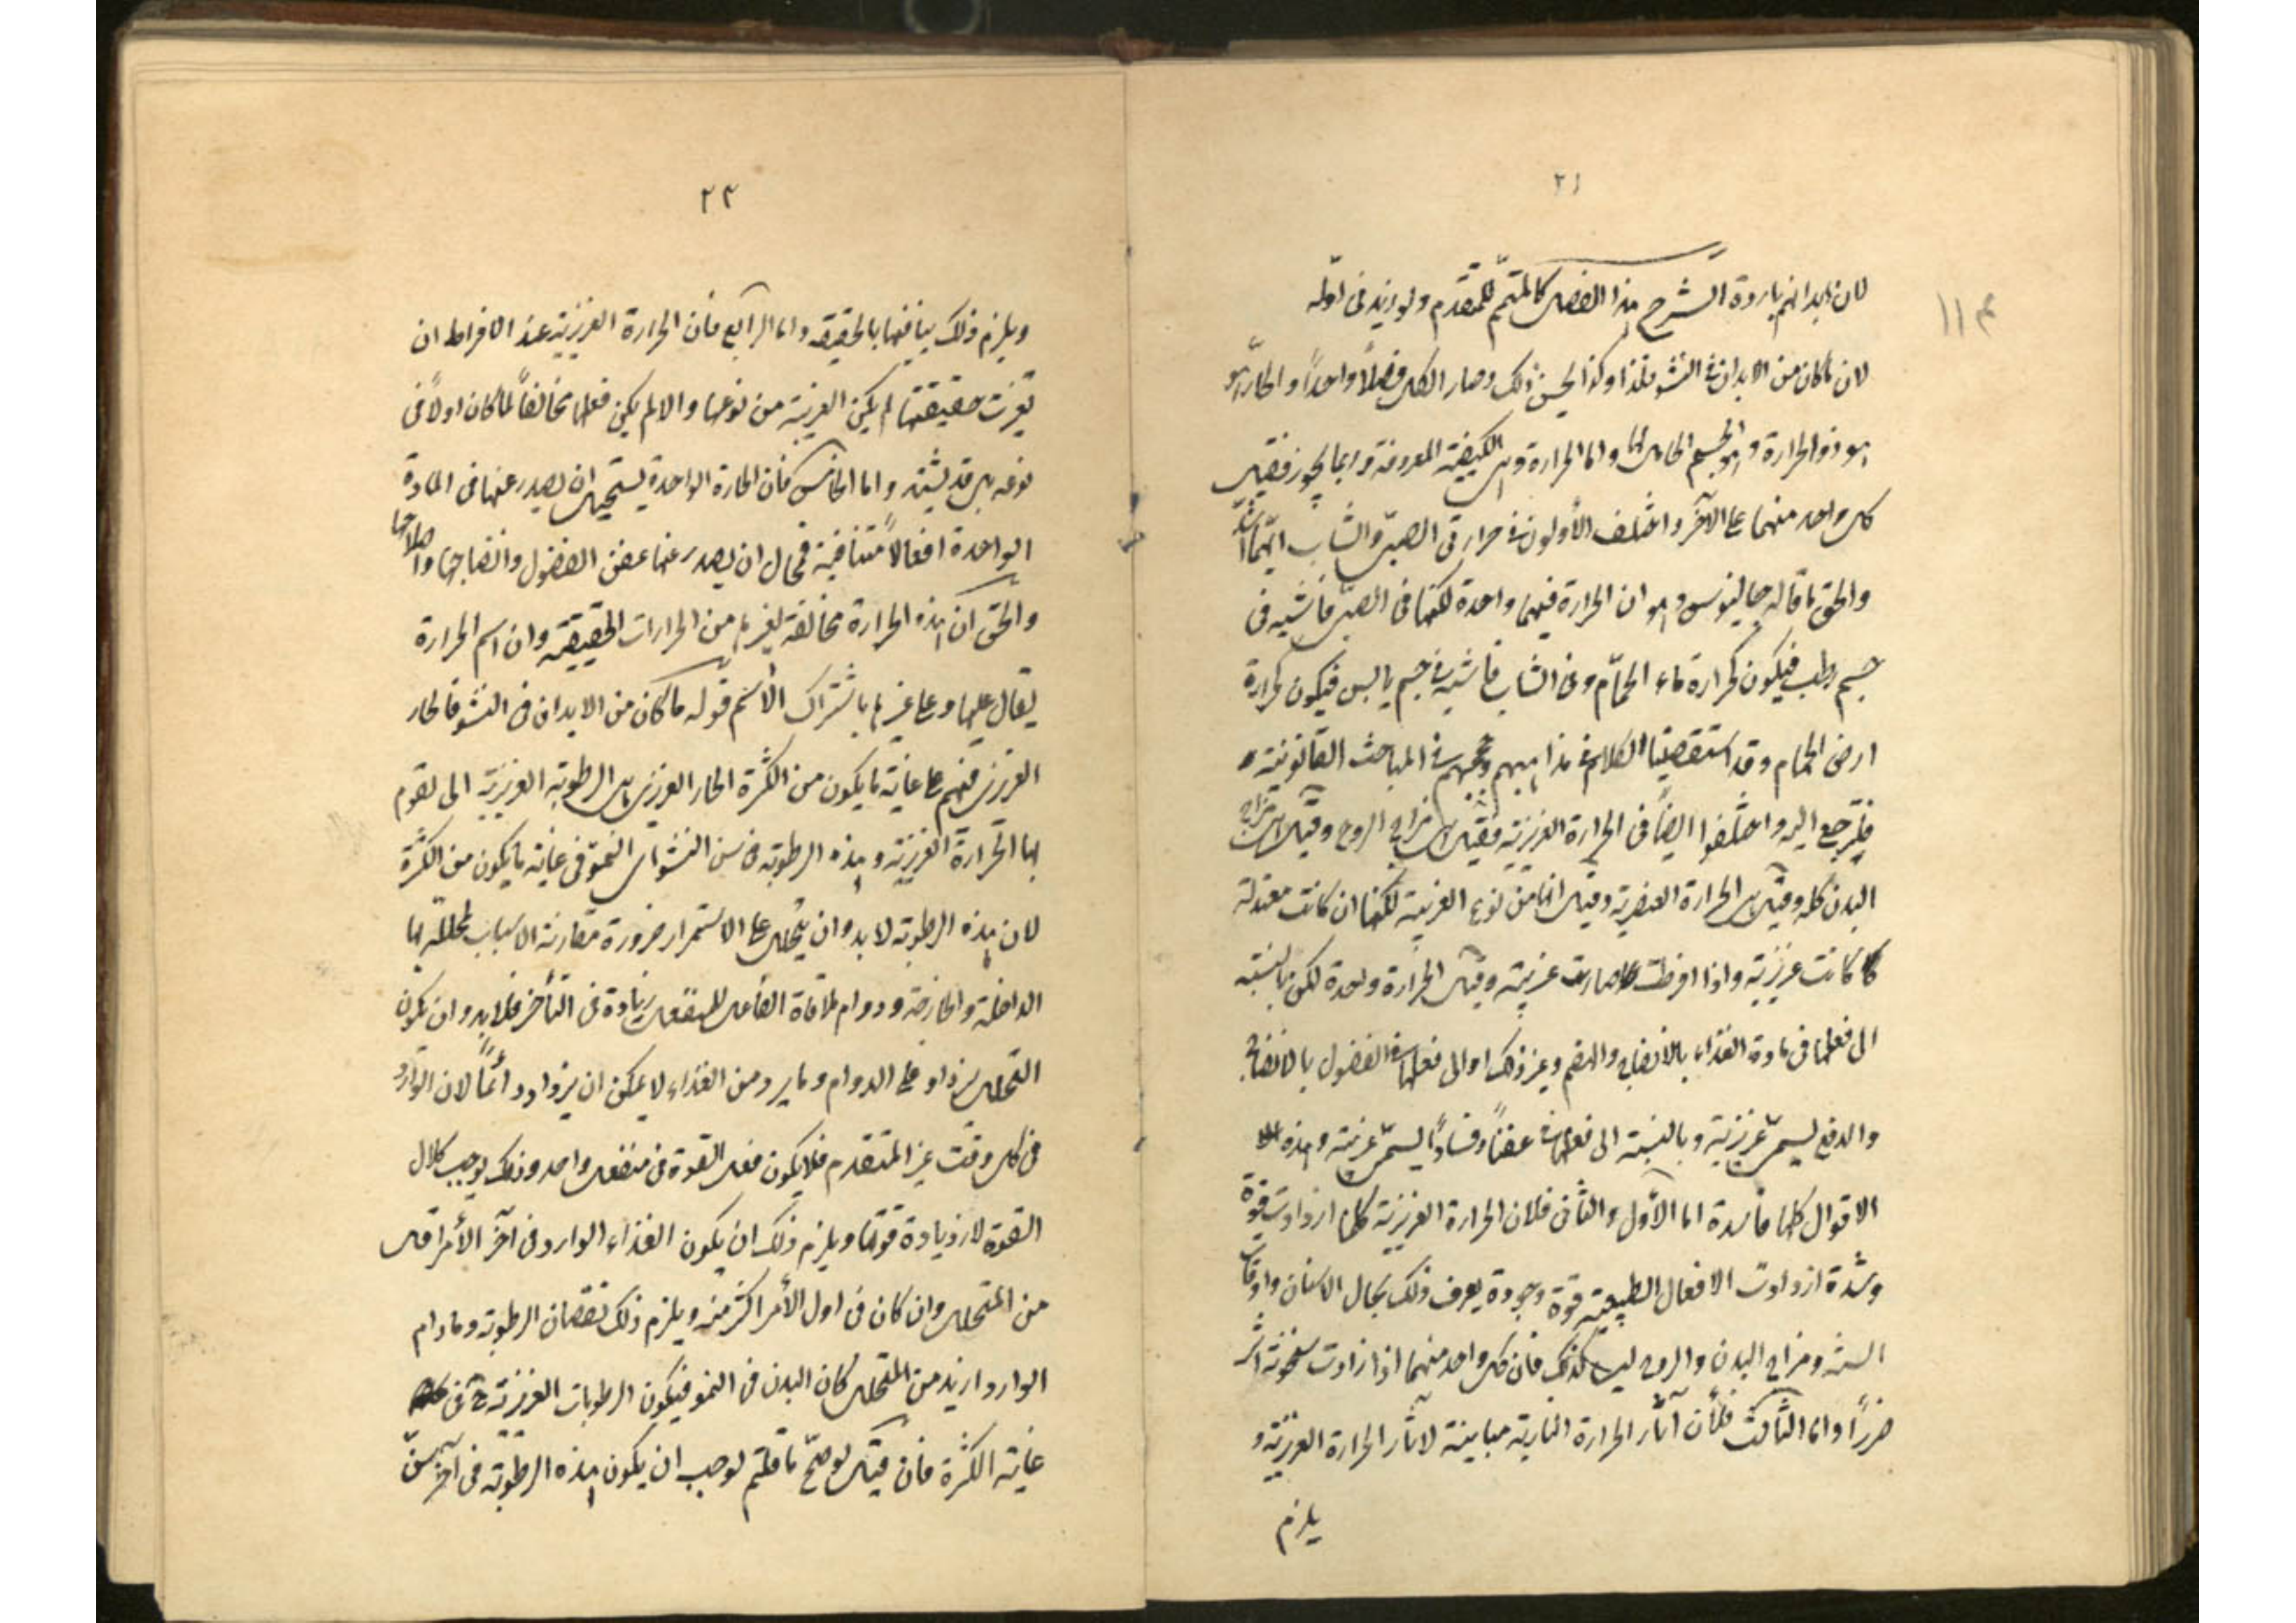 ٢١
م ١١
لان ابدانهم باردة الشرح هذا الفصل كالمتمم للمتقدم ولو زيد فى اوله
لان ما كان من الابدان فى النشو فلذا وكذا لحسن ذلك وصار الكل فصلاً واحداً والحار هو
هو ذو الحرارة وهو الجسم الحامل لها واما الحرارة وهى الكيفية المعروفة وربما يجوز فقيل
كل واحد منهما على الآخر واختلف الأولون فى حرارتى الصبى والشاب ايهما اشد
والحق ما قاله جالينوس وهو ان الحرارة فيهما واحدة لكنها فى الصبى فاشيه فى
جسم رطب فيكون كحرارة ماء الحمّام وفى الشاب فاشيه فى جسم يابس فيكون كحرارة
ارض الحمام وقد استقصينا الكلام فى مذاهبهم وحججهم فى المباحث القانونية
فليرجع اليه واختلفوا ايضاً فى الحرارة الغريزية فقيل هى مزاج الروح وقيل هى مزاج
البدن كله وقيل هى الحرارة العنصرية وقيل انها من نوع الغريبة لكنها ان كانت معتدلة
كانت غريزية واذا افرطت صارت غريبة وقيل الحرارة واحدة لكن بالنسبة
الى فعلها فى مادة الغذاء بالانضاج والهضم وغير ذلك او الى فعلها فى الفضول بالانضاج
والدفع ليسمى غريزية وبالنسبة الى فعلها فى عفناً وفساداً ليسمى غريبة وهذه
الاقوال كلها فاسدة اما الأول والثانى فلان الحرارة الغريزية كلما ازدادت قوة
وشدة ازدادت الافعال الطبيعية قوة وجودة يعرف ذلك بحال الاسنان واوقات
السنة ومزاج البدن والروح ليسا كذلك فان كل واحد منهما اذا زادت سخونته اشر
ضرراً واما الثالث فلأن آثار الحرارة النارية مباينة لآثار الحرارة الغريزية و
يلزم
٢٢
ويلزم ذلك تباينها بالحقيقة واما الرابع فان الحرارة الغريزية عند الافراط ان
تغيرت حقيقتها لم يكن الغريبة من نوعها والا لم يكن فعلها مخالفاً لما كان اولاً فى
نوعه بل قد يشتد واما الخامس فان الحارة الواحدة يستحيل ان يصدر عنها فى المادة
الواحدة افعالاً متنافية فمحال ان يصدر عنها عفن الفضول وانضاجها واصلاحها
والحق ان هذه الحرارة مخالفة لغيرها من الحرارات الحقيقية وان اسم الحرارة
يقال عليها وعلى غيرها باشتراك الأسم قوله ما كان من الابدان فى النشو فالحار
الغريزى فيهم على غاية ما يكون من الكثرة الحار الغريزى هى الرطوبة الغريزية التى تقوم
بها الحرارة الغريزية وهذه الرطوبة فى سن النشو اى النمو فى غاية ما يكون من الكثرة
لان هذه الرطوبة لا بد وان يتحلل على الاستمرار ضرورة مقارنة الاسباب المحللة لها
الداخلة والخارجة ودوام ملاقاة الفاعل للمنفعل زيادة فى التأخر فلا بد وان يكون
التحلل يزداد على الدوام وما يرد من الغذاء لا يمكن ان يزداد دائماً لان الوارد
فى كل وقت غير المتقدم فلا يكون فعل القوة فى منفعل واحد وذلك يوجب كلال
القوة لازدياده قوتها ويلزم ذلك ان يكون الغذاء الوارد فى آخر الأمر اقل
من المتحلل وان كان فى اول الأمر اكثر منه ويلزم ذلك نقصان الرطوبة وما دام
الوارد ازيد من المتحلل كان البدن فى النمو فيكون الرطوبات الغريزية ح فى
غاية الكثرة فان قيل لو صح ما قلتم لوجب ان يكون هذه الرطوبة فى آخر سن